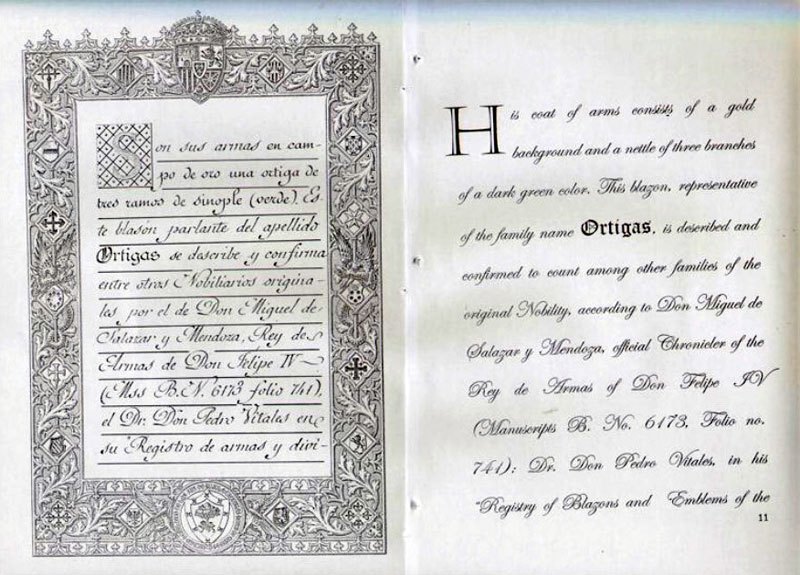 Son sus armas en cam-
po de oro una ortiga de
tres ramos de sinople (verde). Es-
te blasón parlante del apellido
Ortigas se describe y confirma
entre otros Nobiliarios origina-
les por el de Don Miguel de
Salazar y Mendoza, Rey de
Armas de Don Felipe IV
(Mss B.N. 6173 folio 741),
el Dr. Don Pedro Vitales en
su Registro de armas y divi-
His coat of arms consists of a gold
background and a nettle of three branches
of a dark green color. This blazon, representative
of the family name Ortigas, is described and
confirmed to count among other families of the
original Nobility, according to Don Miguel de
Salazar y Mendoza, official Chronicler of the
Rey de Armas of Don Felipe IV
(Manuscripts B. No. 6173, Folio no.
741); Dr. Don Pedro Vitales, in his
"Registry of Blazons and Emblems of the
11